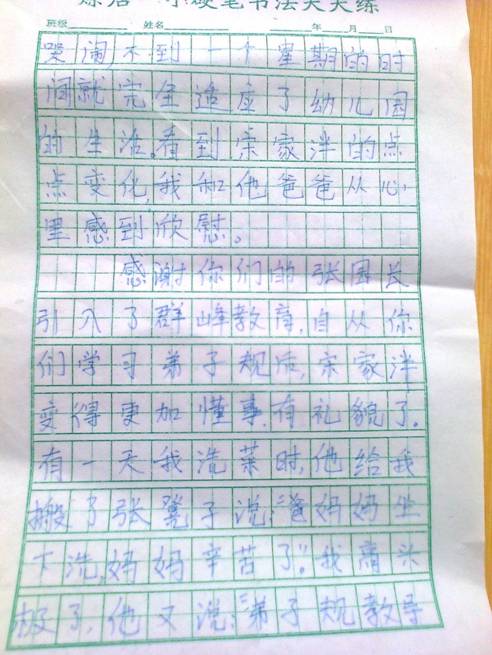 小硬笔书法天天练
班级 姓名 年 月 日
哭闹不到一个星期的时
间就完全适应了幼儿园
的生活。看到宗家泮的点
点变化,我和他爸爸从心
里感到欣慰。
感谢你们的张园长
引入了群峰教育,自从你
们学习弟子规后,宗家泮
变得更加懂事,有礼貌了。
有一天我洗菜时,他给我
搬了张凳子说:“妈妈坐
下洗,妈妈辛苦了。”我高兴
极了,他又说:“弟子规教导